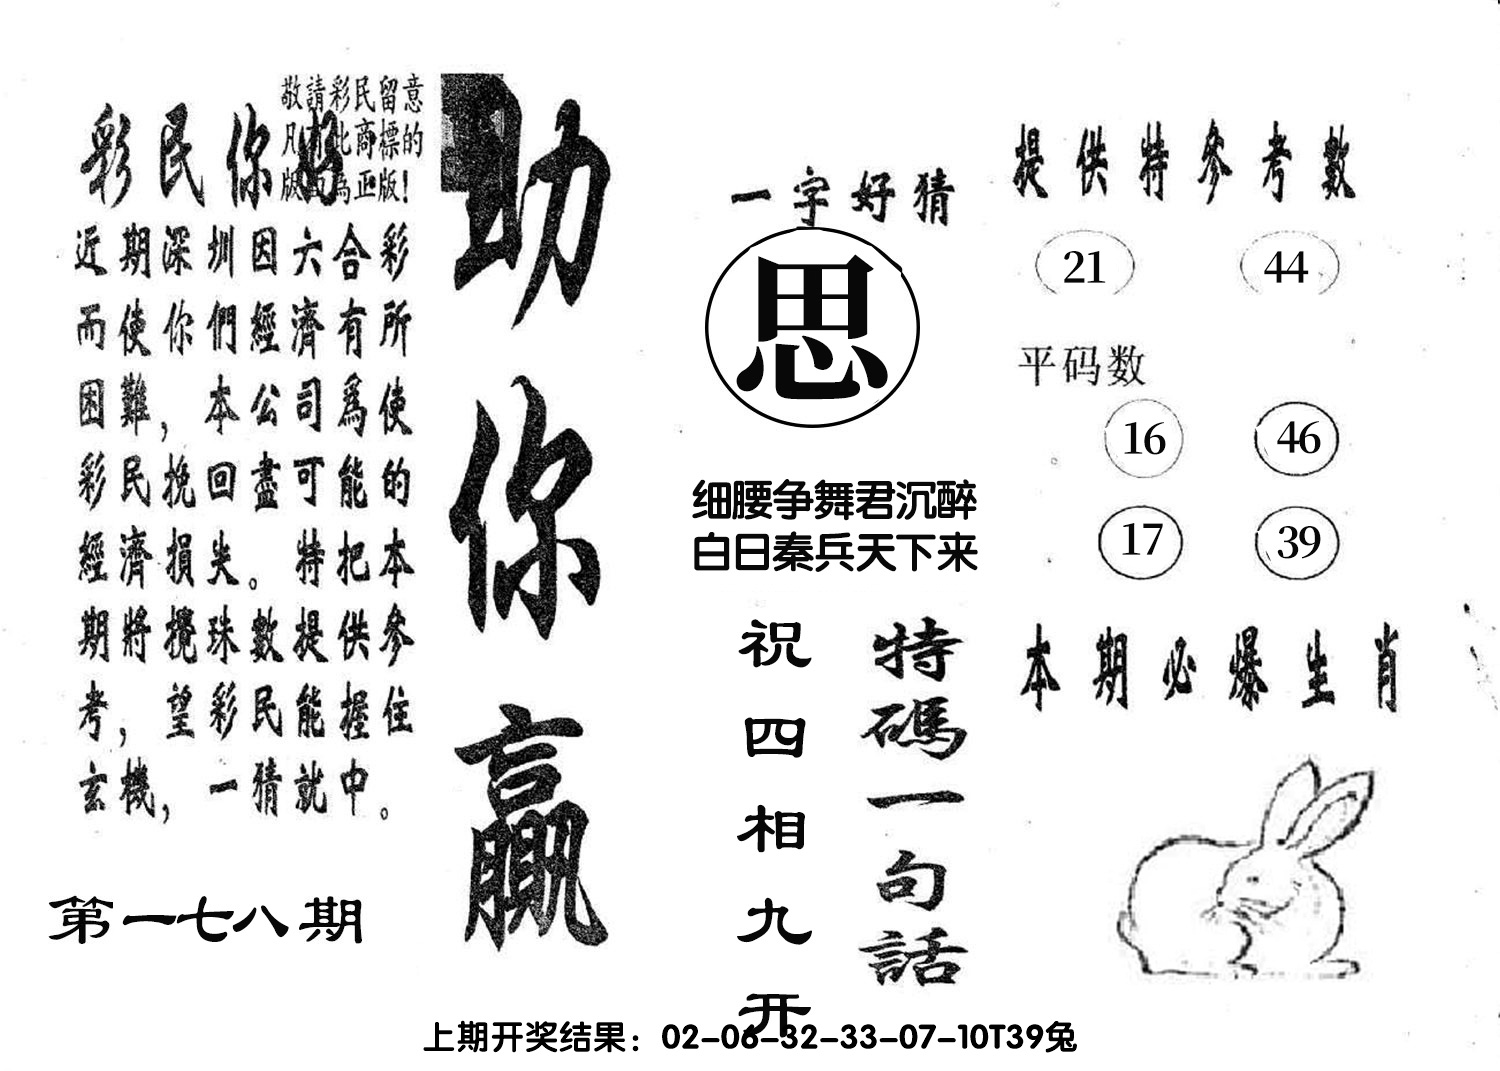 敬請彩民留意
凡有此商標的
版面為正版!
彩民你好
近期深圳因六合彩
而使你們經濟有所
困難，本公司爲使
彩民挽回盡可能的
經濟損失。特把本
期將攪珠數提供參
考，望彩民能握住
玄機，一猜就中。
第一七八期
助你贏
一字好猜
思
细腰争舞君沉醉
白日秦兵天下来
特碼一句話
祝四相九开
提供特参考數
21 44
平码数
16 46
17 39
本期必爆生肖
上期开奖结果：02-06-32-33-07-10T39兔